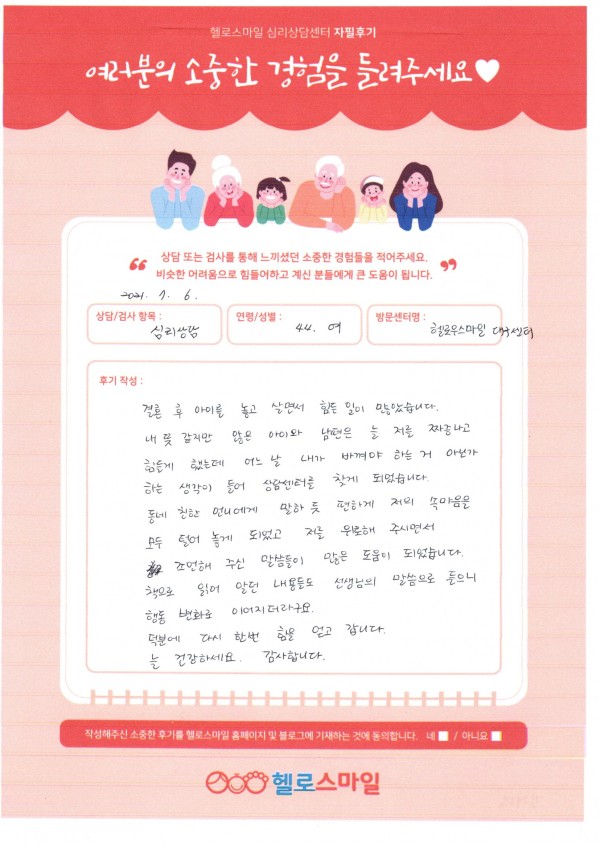 헬로스마일 심리상담센터 자필후기
여러분의 소중한 경험을 들려주세요♥
상담 또는 검사를 통해 느끼셨던 소중한 경험들을 적어주세요.
비슷한 어려움으로 힘들어하고 계신 분들에게 큰 도움이 됩니다.
2021. 7. 6.
상담/검사 항목 : 심리상담
연령/성별 : 44. 여
방문센터명 : 헬로우스마일 대구센터
후기 작성 :
결혼 후 아이를 놓고 살면서 힘든 일이 많았습니다.
내 뜻 같지만 않은 아이와 남편은 늘 저를 짜증나고
힘들게 했는데 어느 날 내가 바껴야 하는 거 아닌가
하는 생각이 들어 상담센터를 찾게 되었습니다.
동네 친한 언니에게 말하 듯 편하게 저의 속마음을
모두 털어 놓게 되었고 저를 위로해 주시면서
조언해 주신 말씀들이 많은 도움이 되었습니다.
책으로 읽어 알던 내용들도 선생님의 말씀으로 들으니
행동 변화로 이어지더라구요.
덕분에 다시 한번 힘을 얻고 갑니다.
늘 건강하세요. 감사합니다.
작성해주신 소중한 후기를 헬로스마일 홈페이지 및 블로그에 기재하는 것에 동의합니다. 네 / 아니요
헬로스마일